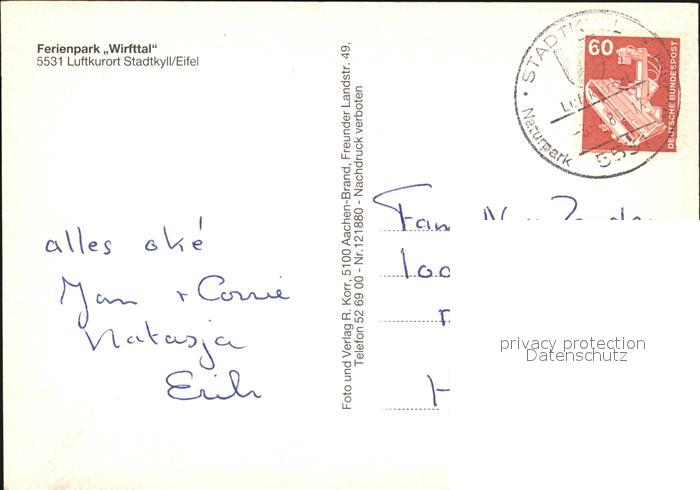 Ferienpark „Wirfttal“
5531 Luftkurort Stadtkyll/Eifel
alles oké
Jan + Corrie
Natasja
Erik
Foto und Verlag R. Korr, 5100 Aachen-Brand, Freunder Landstr. 49,
Telefon 52 69 00 - Nr.121880 - Nachdruck verboten
STADTKYLL
Naturpark
60
DEUTSCHE BUNDESPOST
Fam
privacy protection
Datenschutz